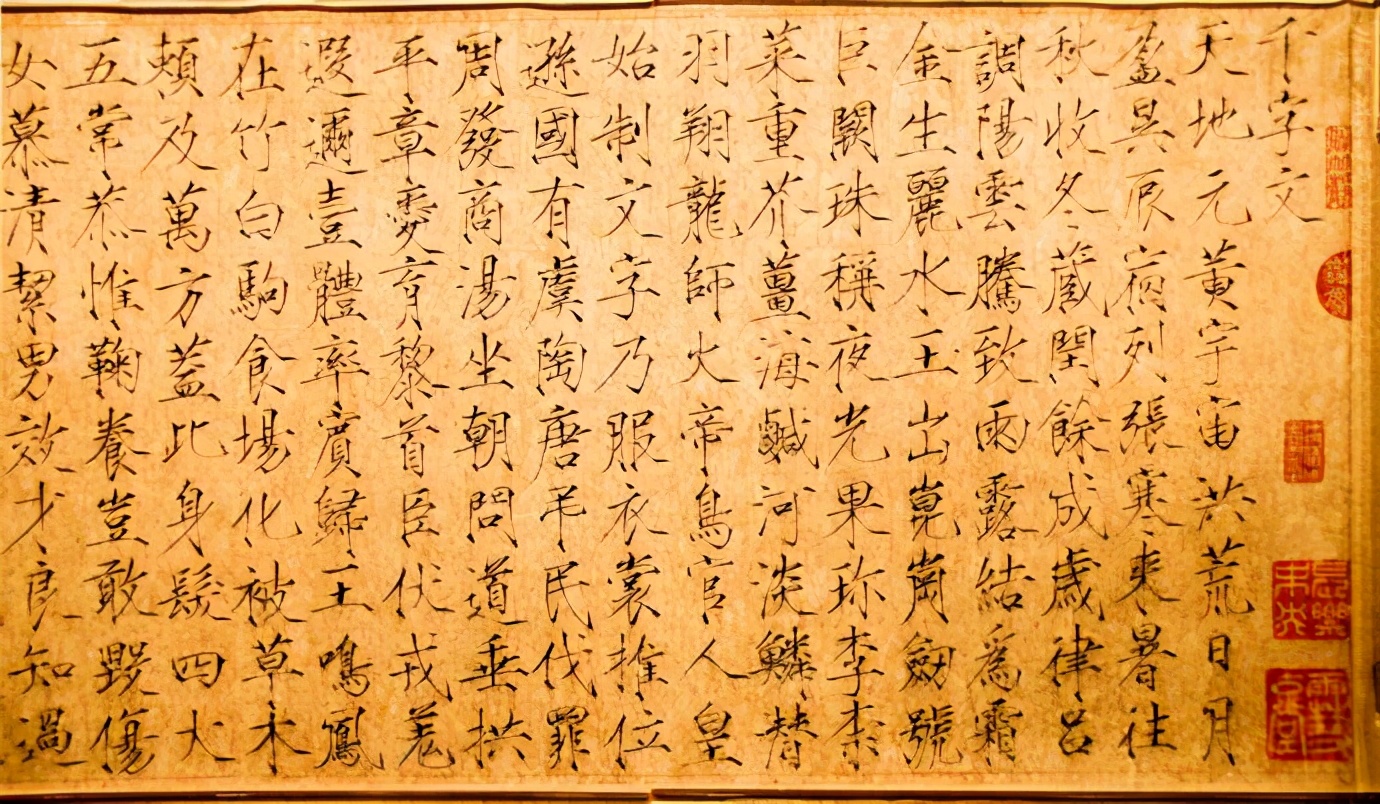 千字文
天地元黄宇宙洪荒日月
盈昃辰宿列張寒来暑往
秋收冬蔵閏餘成歳律呂
調陽雲騰致雨露結為霜
金生麗水玉出崑崗劒號
巨闕珠稱夜光果珎李柰
菜重芥薑海鹹河淡鱗替
羽翔龍師火帝鳥官人皇
始制文字乃服衣裳推位
遜國有虞陶唐弔民伐罪
周發商湯坐朝問道垂拱
平章愛育黎首臣伏戎羌
遐邇壹體率賔歸王鳴鳳
在竹白駒食場化被草木
頼及萬方蓋此身髮四大
五常恭惟鞠養豈敢毀傷
女慕清絜男效才良知過